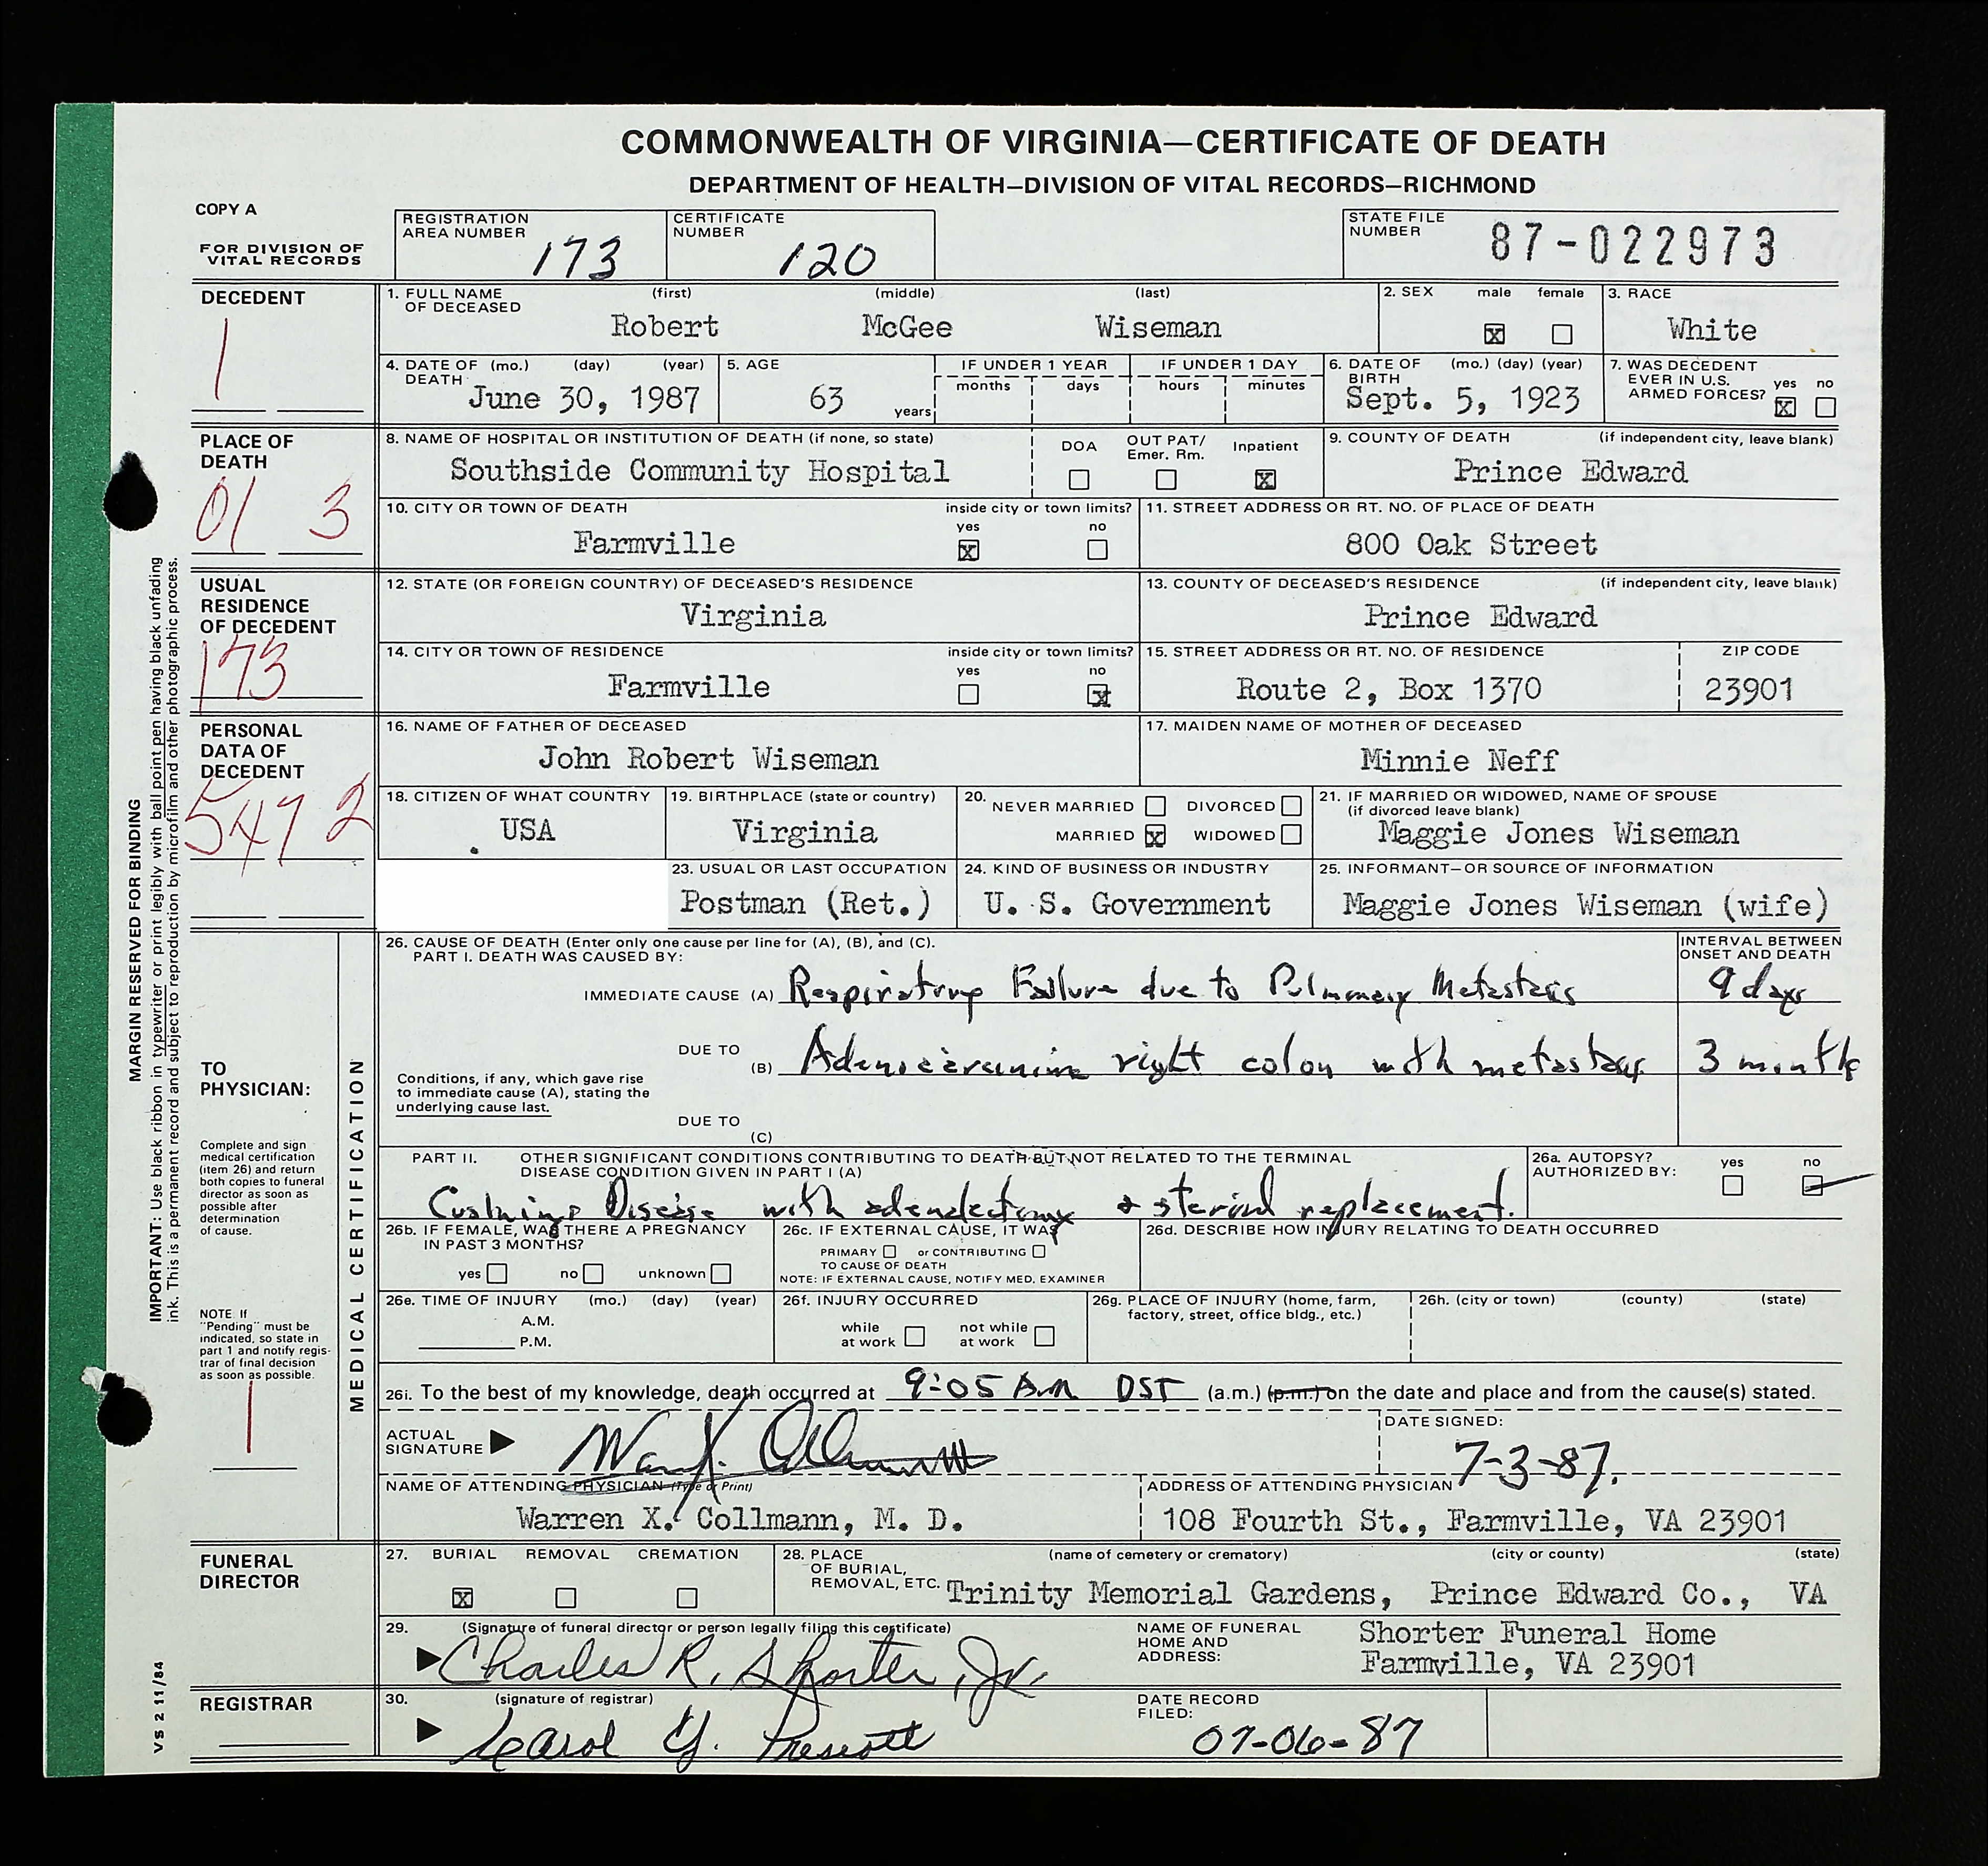 COMMONWEALTH OF VIRGINIA—CERTIFICATE OF DEATH
DEPARTMENT OF HEALTH—DIVISION OF VITAL RECORDS—RICHMOND
COPY A
FOR DIVISION OF
VITAL RECORDS
REGISTRATION
AREA NUMBER 173
CERTIFICATE
NUMBER 120
STATE FILE
NUMBER 87-022973
DECEDENT
1
1. FULL NAME (first) (middle) (last)
OF DECEASED
Robert McGee Wiseman
2. SEX male female
x
3. RACE
White
4. DATE OF (mo.) (day) (year)
DEATH
June 30, 1987
5. AGE
63 years
IF UNDER 1 YEAR
months days
IF UNDER 1 DAY
hours minutes
6. DATE OF (mo.) (day) (year)
BIRTH
Sept. 5, 1923
7. WAS DECEDENT
EVER IN U.S. yes no
ARMED FORCES? x
PLACE OF
DEATH
01 3
8. NAME OF HOSPITAL OR INSTITUTION OF DEATH (if none, so state)
Southside Community Hospital
DOA OUT PAT/ Inpatient
Emer. Rm.
x
9. COUNTY OF DEATH (if independent city, leave blank)
Prince Edward
10. CITY OR TOWN OF DEATH inside city or town limits?
yes no
Farmville x
11. STREET ADDRESS OR RT. NO. OF PLACE OF DEATH
800 Oak Street
USUAL
RESIDENCE
OF DECEDENT
173
12. STATE (OR FOREIGN COUNTRY) OF DECEASED'S RESIDENCE
Virginia
13. COUNTY OF DECEASED'S RESIDENCE (if independent city, leave blank)
Prince Edward
14. CITY OR TOWN OF RESIDENCE inside city or town limits?
yes no
Farmville x
15. STREET ADDRESS OR RT. NO. OF RESIDENCE ZIP CODE
Route 2, Box 1370 23901
PERSONAL
DATA OF
DECEDENT
547 2
16. NAME OF FATHER OF DECEASED
John Robert Wiseman
17. MAIDEN NAME OF MOTHER OF DECEASED
Minnie Neff
18. CITIZEN OF WHAT COUNTRY
USA
19. BIRTHPLACE (state or country)
Virginia
20. NEVER MARRIED DIVORCED
MARRIED x WIDOWED
21. IF MARRIED OR WIDOWED, NAME OF SPOUSE
(if divorced leave blank)
Maggie Jones Wiseman
23. USUAL OR LAST OCCUPATION
Postman (Ret.)
24. KIND OF BUSINESS OR INDUSTRY
U. S. Government
25. INFORMANT—OR SOURCE OF INFORMATION
Maggie Jones Wiseman (wife)
MARGIN RESERVED FOR BINDING
IMPORTANT: Use black ribbon in typewriter or print legibly with ball point pen having black unfading
ink. This is a permanent record and subject to reproduction by microfilm and other photographic process.
TO
PHYSICIAN:
Complete and sign
medical certification
(item 26) and return
both copies to funeral
director as soon as
possible after
determination
of cause.
NOTE If
"Pending" must be
indicated, so state in
part 1 and notify regis-
trar of final decision
as soon as possible.
1
MEDICAL CERTIFICATION
26. CAUSE OF DEATH (Enter only one cause per line for (A), (B), and (C).
PART I. DEATH WAS CAUSED BY:
INTERVAL BETWEEN
ONSET AND DEATH
IMMEDIATE CAUSE (A) Respiratory Failure due to Pulmonary Metastasis 9 days
DUE TO
(B) Adenocarcinoma right colon with metastasis 3 months
Conditions, if any, which gave rise
to immediate cause (A), stating the
underlying cause last.
DUE TO
(C)
PART II. OTHER SIGNIFICANT CONDITIONS CONTRIBUTING TO DEATH BUT NOT RELATED TO THE TERMINAL
DISEASE CONDITION GIVEN IN PART I (A)
Cushings Disease with adenalectomy & steroid replacement.
26a. AUTOPSY? yes no
AUTHORIZED BY:
26b. IF FEMALE, WAS THERE A PREGNANCY
IN PAST 3 MONTHS?
yes no unknown
26c. IF EXTERNAL CAUSE, IT WAS
PRIMARY or CONTRIBUTING
TO CAUSE OF DEATH
NOTE: IF EXTERNAL CAUSE, NOTIFY MED. EXAMINER
26d. DESCRIBE HOW INJURY RELATING TO DEATH OCCURRED
26e. TIME OF INJURY (mo.) (day) (year)
A.M.
P.M.
26f. INJURY OCCURRED
while not while
at work at work
26g. PLACE OF INJURY (home, farm,
factory, street, office bldg., etc.)
26h. (city or town) (county) (state)
26i. To the best of my knowledge, death occurred at 9:05 A.M. DST (a.m.) (p.m.) on the date and place and from the cause(s) stated.
ACTUAL
SIGNATURE
DATE SIGNED:
7-3-87.
NAME OF ATTENDING PHYSICIAN (Type or Print)
Warren X. Collmann, M. D.
ADDRESS OF ATTENDING PHYSICIAN
108 Fourth St., Farmville, VA 23901
FUNERAL
DIRECTOR
27. BURIAL REMOVAL CREMATION
x
28. PLACE (name of cemetery or crematory) (city or county) (state)
OF BURIAL,
REMOVAL, ETC. Trinity Memorial Gardens, Prince Edward Co., VA
29. (Signature of funeral director or person legally filing this certificate)
Charles R. Shorter, Jr.
NAME OF FUNERAL
HOME AND
ADDRESS:
Shorter Funeral Home
Farmville, VA 23901
REGISTRAR
30. (signature of registrar)
Carol Y. Prescott
DATE RECORD
FILED:
07-06-87
VS 2 11/84